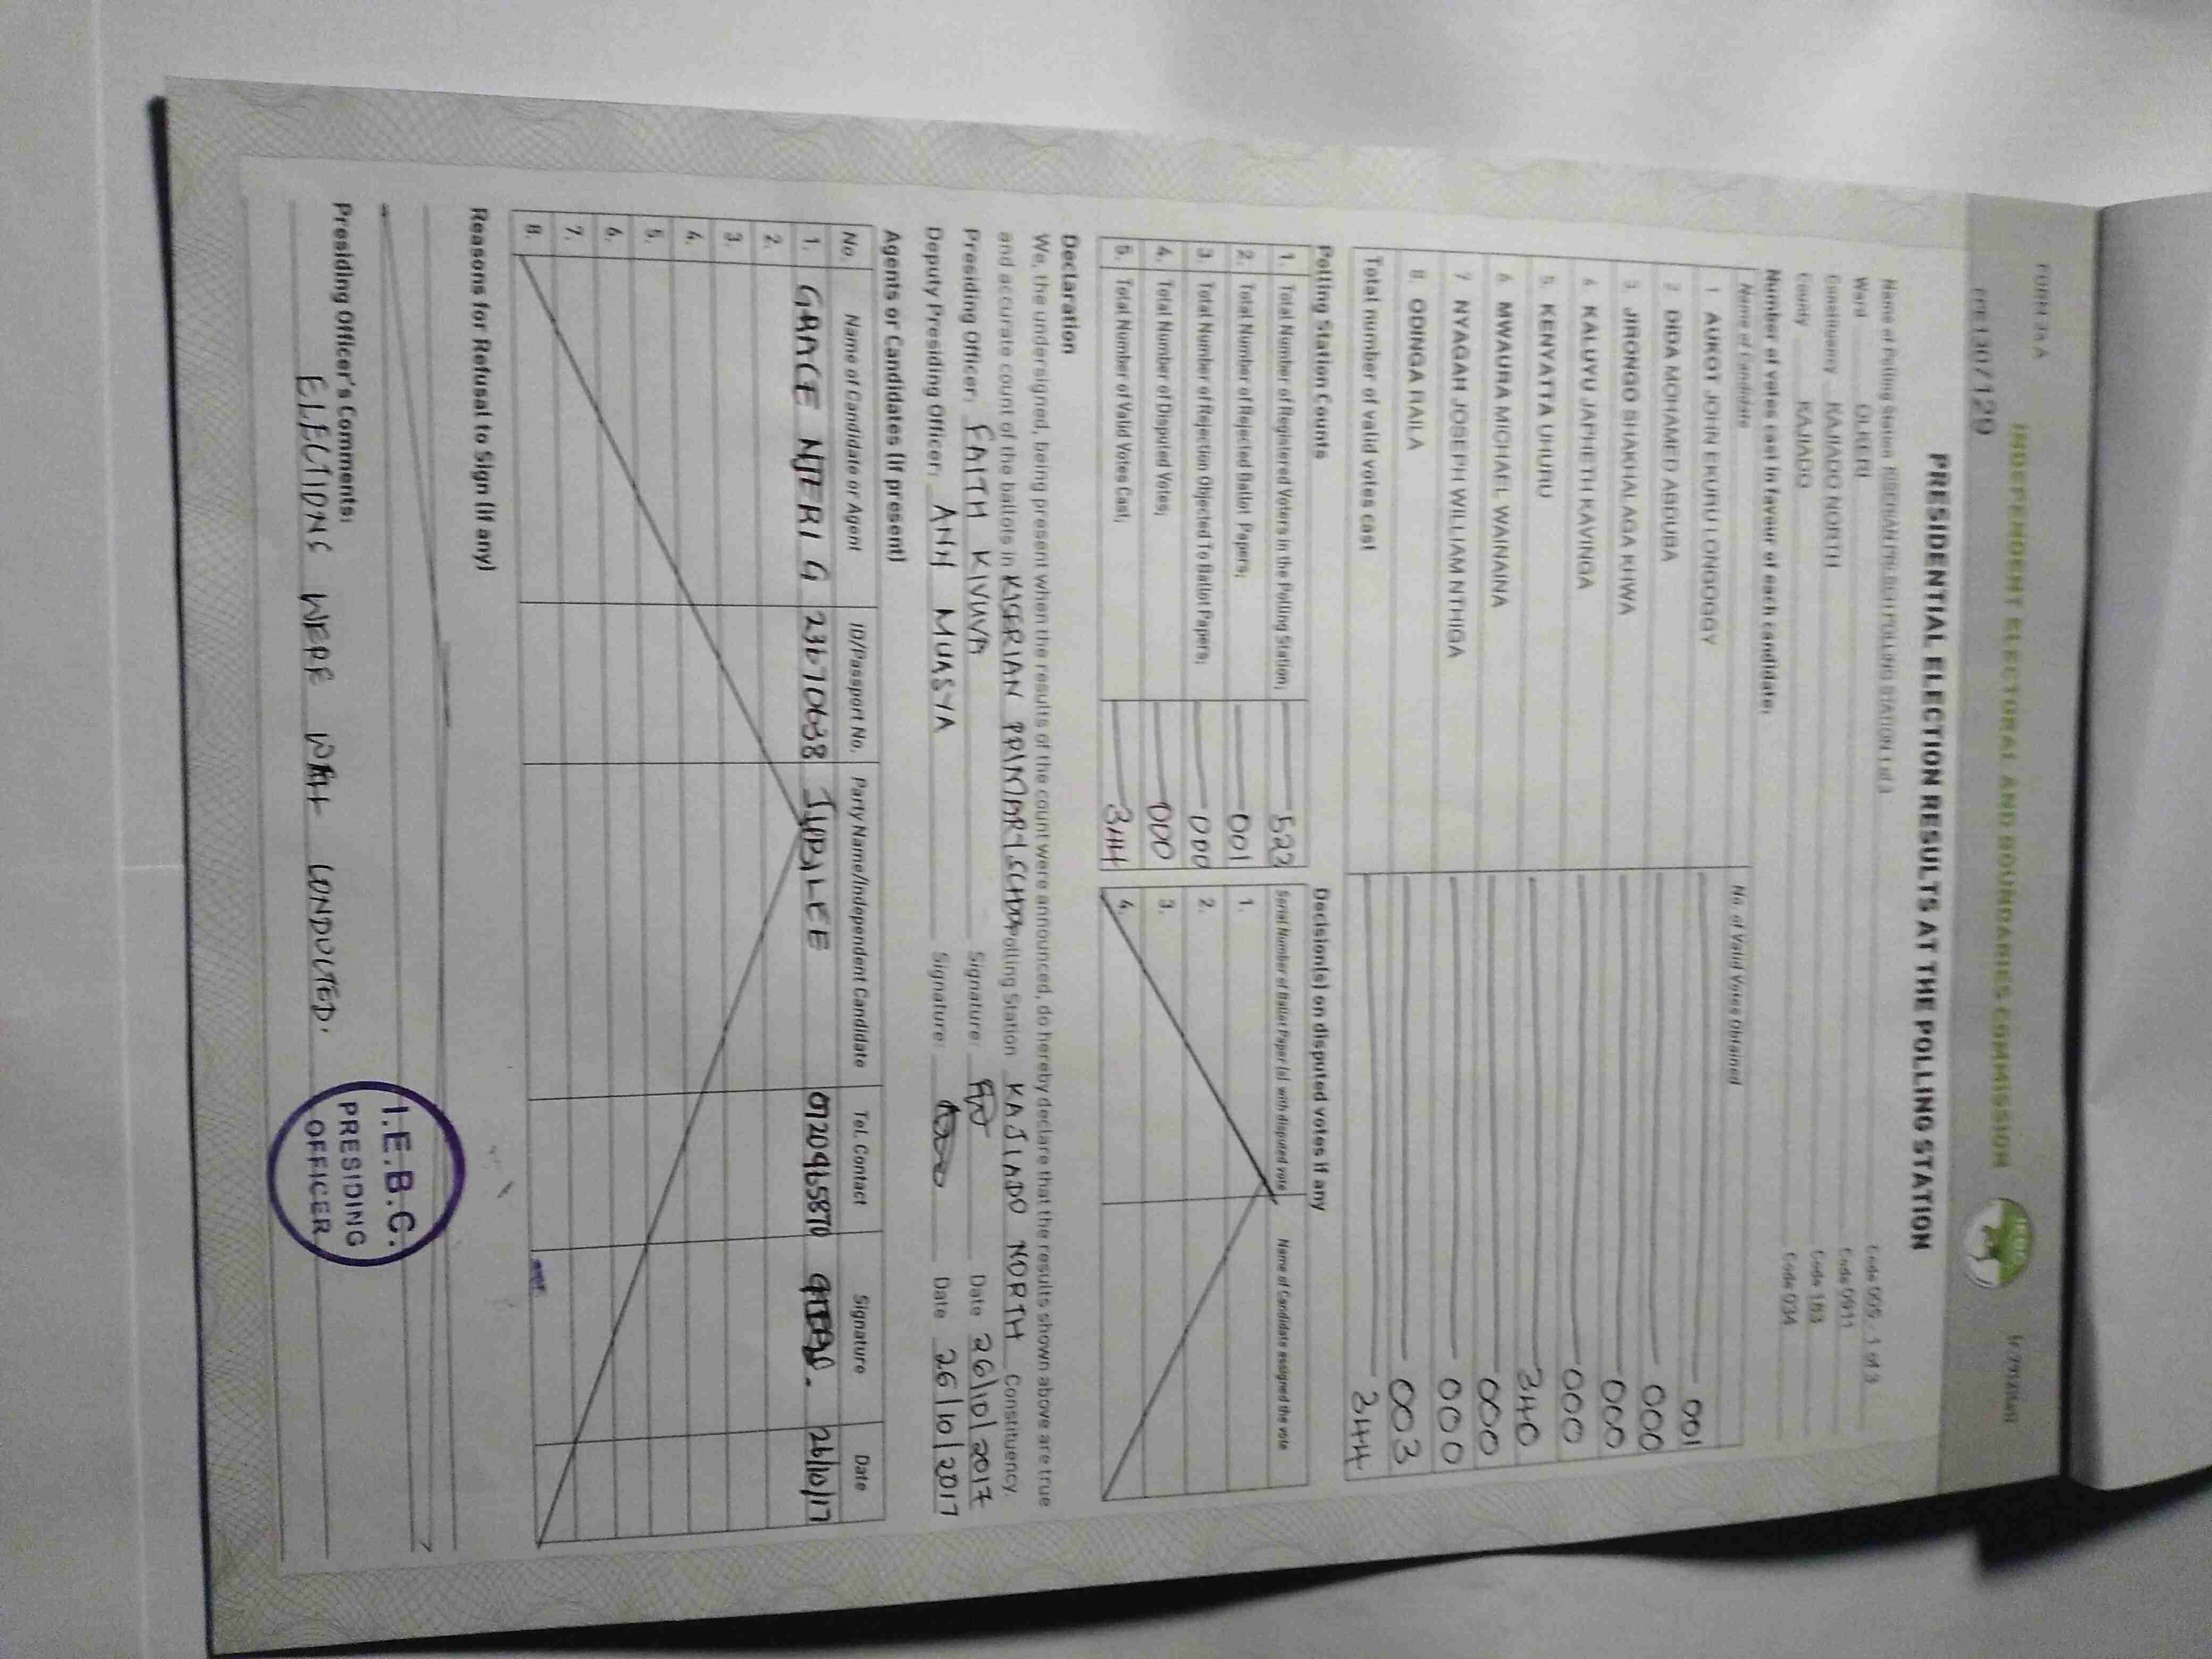 FORM 34 A
INDEPENDENT ELECTORAL AND BOUNDARIES COMMISSION
PRESIDENTIAL ELECTION RESULTS AT THE POLLING STATION
Name of Polling Station KISERIAN PRI SCH POLLING STATION 1 of 3 Code 005 - 1 of 3
Ward OLKERI Code 0911
Constituency KAJIADO NORTH Code 183
County KAJIADO Code 034
Number of votes cast in favour of each candidate:
Name of Candidate No. of Valid Votes Obtained
1 AUKOT JOHN EKURU LONGOGGY 001
2 DIDA MOHAMED ABDUBA 000
3 JIRONGO SHAKHALAGA KHWA 000
4 KALUYU JAPHETH KAVINGA 000
5 KENYATTA UHURU 340
6 MWAURA MICHAEL WAINAINA 000
7 NYAGAH JOSEPH WILLIAM NTHIGA 000
8. ODINGA RAILA 003
Total number of valid votes cast 344
Polling Station Counts
1. Total Number of Registered Voters in the Polling Station;
2. Total Number of Rejected Ballot Papers; 001
3. Total Number of Rejection Objected To Ballot Papers; 000
4. Total Number of Disputed Votes; 000
5. Total Number of Valid Votes Cast; 344
Decision(s) on disputed votes if any
Serial Number of Ballot Paper (s) with disputed vote Name of Candidate assigned the vote
1.
2.
3.
4.
Declaration
We, the undersigned, being present when the results of the count were announced, do hereby declare that the results shown above are true
and accurate count of the ballots in KISERIAN PRIMARY SCHOOL Polling Station KAJIADO NORTH Constituency.
Presiding Officer: FAITH KIVUVA Signature: Date 26/10/2017
Deputy Presiding Officer: ANN MUASYA Signature: Date 26/10/2017
Agents or Candidates (if present)
No. Name of Candidate or Agent ID/Passport No. Party Name/Independent Candidate Tel. Contact Signature Date
1. GRACE NJERI G 23670638 JUBILEE 0720465870 26/10/17
2.
3.
4.
5.
6.
7.
8.
Reasons for Refusal to Sign (if any)
Presiding Officer's Comments:
ELECTIONS WERE CONDUCTED.
I.E.B.C.
PRESIDING
OFFICER